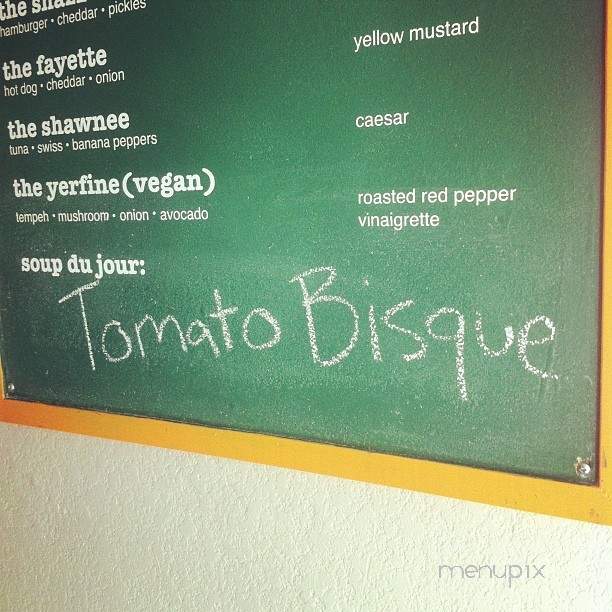 the
hamburger • cheddar • pickles
yellow mustard
the fayette
hot dog • cheddar • onion
the shawnee
tuna • swiss • banana peppers
caesar
the yerfine (vegan)
tempeh • mushroom • onion • avocado
roasted red pepper
vinaigrette
soup du jour:
Tomato Bisque
menupix